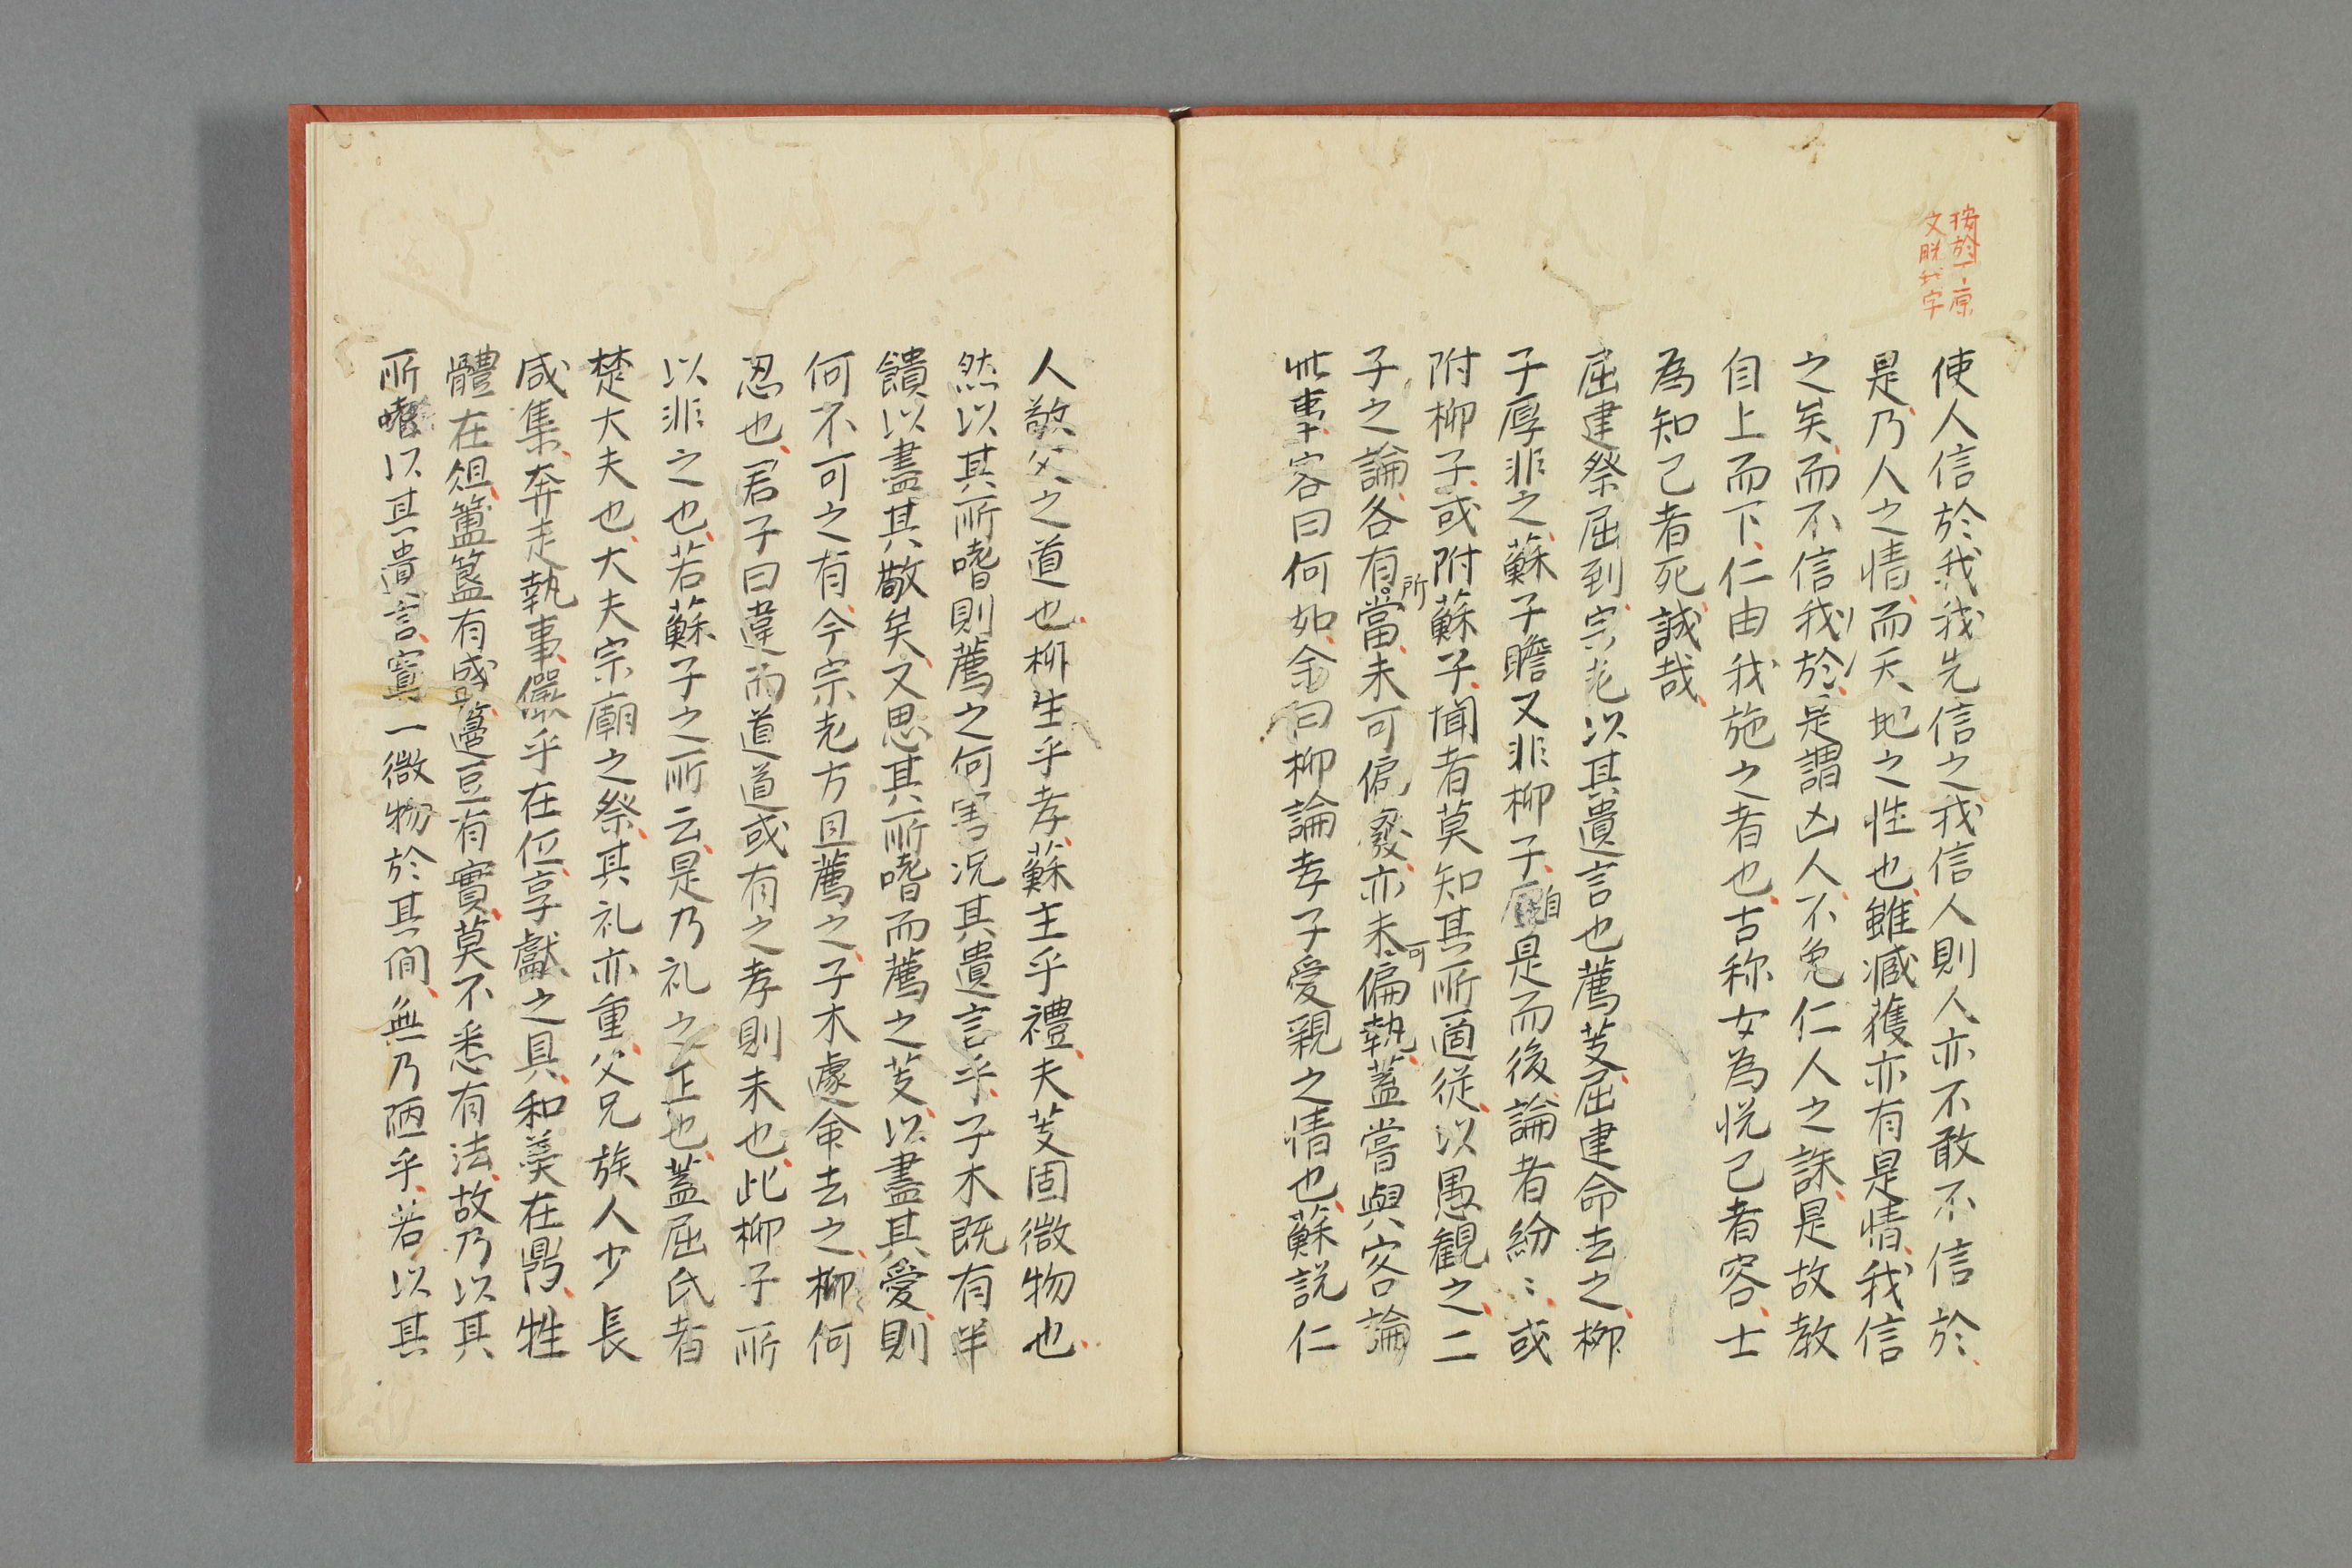 按於下原
文脱我字
使人信於我我先信之我信人則人亦不敢不信於
是乃人之情而天地之性也雖臧獲亦有是情我信
之矣而不信我於是謂凶人不免仁人之誅是故教
自上而下仁由我施之者也古称女為悦己者容士
為知己者死誠哉
屈建祭屈到宗老以其遺言也薦芰屈建命去之柳
子厚非之蘇子瞻又非柳子自是而後論者紛〻或
附柳子或附蘇子聞者莫知其所適從以愚観之二
子之論各有所當未可偏廢亦未可偏執蓋嘗與客論
此事客曰何如余曰柳論孝子愛親之情也蘇説仁
人敬父之道也柳生乎孝蘇主乎禮夫芰固微物也
然以其所嗜則薦之何害况其遺言乎子木既有羊
饋以盡其敬矣又思其所嗜而薦之芰以盡其愛則
何不可之有今宗老方且薦之子木遽命去之柳何
忍也君子曰違而道道或有之孝則未也此柳子所
以非之也若蘇子之所云是乃礼之正也蓋屈氏者
楚大夫也大夫宗廟之祭其礼亦重父兄族人少長
咸集奔走執事儼乎在位享獻之具和羹在鼎牲
體在俎簠簋有盛籩豆有實莫不悉有法故乃以其
所嗜以其遺言寘一微物於其間無乃陋乎若以其